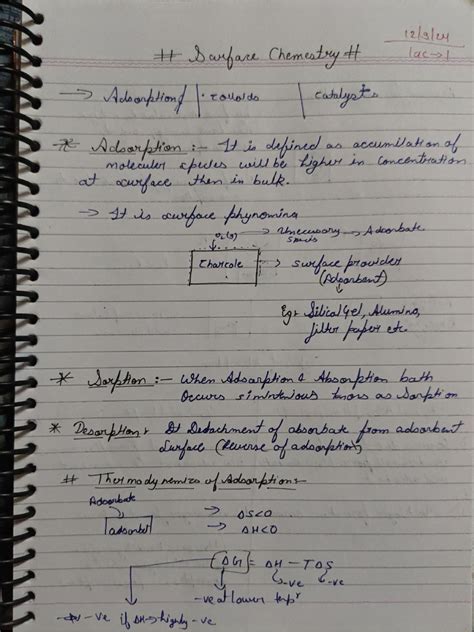 12/9/24
Lec-1
# Surface Chemestry #
→ Adsorption | • colloids | catalyst
* Adsorption :- It is defined as accumilation of
moleculer species will be higher in concentration
at surface then in bulk.
→ It is surface phynomina
O₂(g) → Unecessary → Adsorbate
Charcole → surface provider
(Adsorbent)
Eg: Silica Gel, Alumino,
filter paper etc.
* Sorption :- When Adsorption & Absorption both
Occurs known as Sorption
* Desorption : Detachment of absorbate from adsorbent
surface (Reverse of adsorption)
# Thermodynemics of Adsorption :-
Adsorbate
→ ΔS<0
adsorbet → ΔH<0
ΔG = ΔH - TΔS
-ve -ve
-ve at lower tempʳ
-ve if ΔH → highly -ve